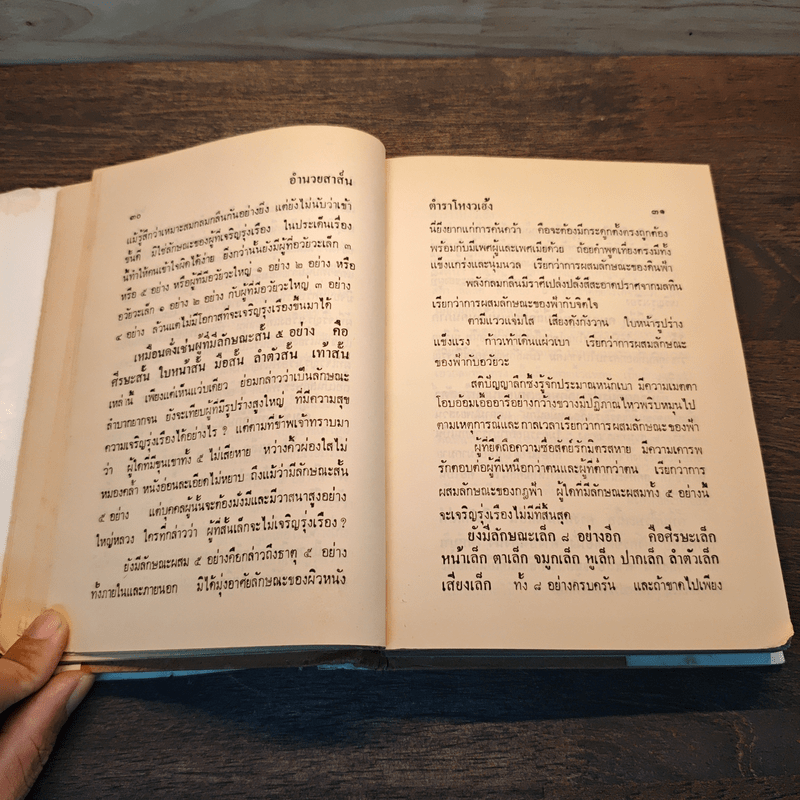 ๓๐
อำนวยสาส์น
แม้รู้สึกว่าเหมาะสมกลมกลืนกันอย่างยิ่ง แต่ยังไม่นับว่าเข้า
ขั้นดี มิใช่ลักษณะของผู้ที่เจริญรุ่งเรือง ในประเด็นเรื่อง
นี้ทำให้คนเข้าใจผิดได้ง่าย ยิ่งกว่านั้นยังมีผู้ที่อวัยวะเล็ก ๓
หรือ ๕ อย่าง หรือผู้ที่มีอวัยวะใหญ่ ๑ อย่าง ๒ อย่าง หรือ
อวัยวะเล็ก ๑ อย่าง ๒ อย่าง กับผู้ที่มีอวัยวะใหญ่ ๓ อย่าง
๔ อย่าง ล้วนแต่ไม่มีโอกาสที่จะเจริญรุ่งเรืองขึ้นมาได้
เหมือนดั่งเช่นผู้ที่มีลักษณะสั้น ๕ อย่าง คือ
ศีรษะสั้น ใบหน้าสั้น มือสั้น ลำตัวสั้น เท้าสั้น
เหล่านี้ เพียงแต่เห็นแว่บเดียว ย่อมกล่าวว่าเป็นลักษณะ
ลำบากยากจน ยังจะเทียบผู้ที่มีรูปร่างสูงใหญ่ ที่มีความสุข
ความเจริญรุ่งเรืองได้อย่างไร ? แต่ตามที่ข้าพเจ้าทราบมา
ว่า ผู้ใดที่มีขุนเขาทั้ง ๕ ไม่เสียหาย หว่างคิ้วผ่องใสไม่
หมองคล้ำ หนังอ่อนละเอียดไม่หยาบ ถึงแม้ว่ามีลักษณะสั้น
๕ อย่าง แต่บุคคลผู้นั้นจะต้องมั่งมีและมีวาสนาสูงอย่าง
ใหญ่หลวง ใครที่กล่าวว่า ผู้ที่สั้นเล็กจะไม่เจริญรุ่งเรือง ?
ยังมีลักษณะผสม ๕ อย่างคือกล่าวถึงธาตุ ๕ อย่าง
ทั้งภายในและภายนอก มิได้มุ่งอาศัยลักษณะของผิวหนัง
ตำราโหงวเฮ้ง
๓๑
นี่ยิ่งยากแก่การค้นคว้า คือจะต้องมีกระดูกตั้งตรงถูกต้อง
พร้อมกับมีเพศผู้และเพศเมียด้วย ถ้อยคำพูดเที่ยงตรงมีทั้ง
แข็งแกร่งและนุ่มนวล เรียกว่าการผสมลักษณะของดินฟ้า
พลังกลมกลืนมีราศีเปล่งปลั่งสีสะอาดปราศจากมลทิน
เรียกว่าการผสมลักษณะของฟ้ากับจิตใจ
ตามีแววแจ่มใส เสียงดังกังวาน ใบหน้ารูปร่าง
แข็งแรง ก้าวเท้าเดินแผ่วเบา เรียกว่าการผสมลักษณะ
ของฟ้ากับอวัยวะ
สติปัญญาลึกซึ้งรู้จักประมาณหนักเบา มีความเมตตา
โอบอ้อมเอื้ออารีอย่างกว้างขวางมีปฏิภาณไหวพริบหมุนไป
ตามเหตุการณ์และกาลเวลาเรียกว่าการผสมลักษณะของฟ้า
ผู้ที่ยึดถือความซื่อสัตย์รักมิตรสหาย มีความเคารพ
รักตอบต่อผู้ที่เหนือกว่าตนและผู้ที่ต่ำกว่าตน เรียกว่าการ
ผสมลักษณะของกฎฟ้า ผู้ใดที่มีลักษณะผสมทั้ง ๕ อย่างนี้
จะเจริญรุ่งเรืองไม่มีที่สิ้นสุด
ยังมีลักษณะเล็ก ๘ อย่างอีก คือศีรษะเล็ก
หน้าเล็ก ตาเล็ก จมูกเล็ก หูเล็ก ปากเล็ก ลำตัวเล็ก
เสียงเล็ก ทั้ง ๘ อย่างครบครัน และถ้าขาดไปเพียง